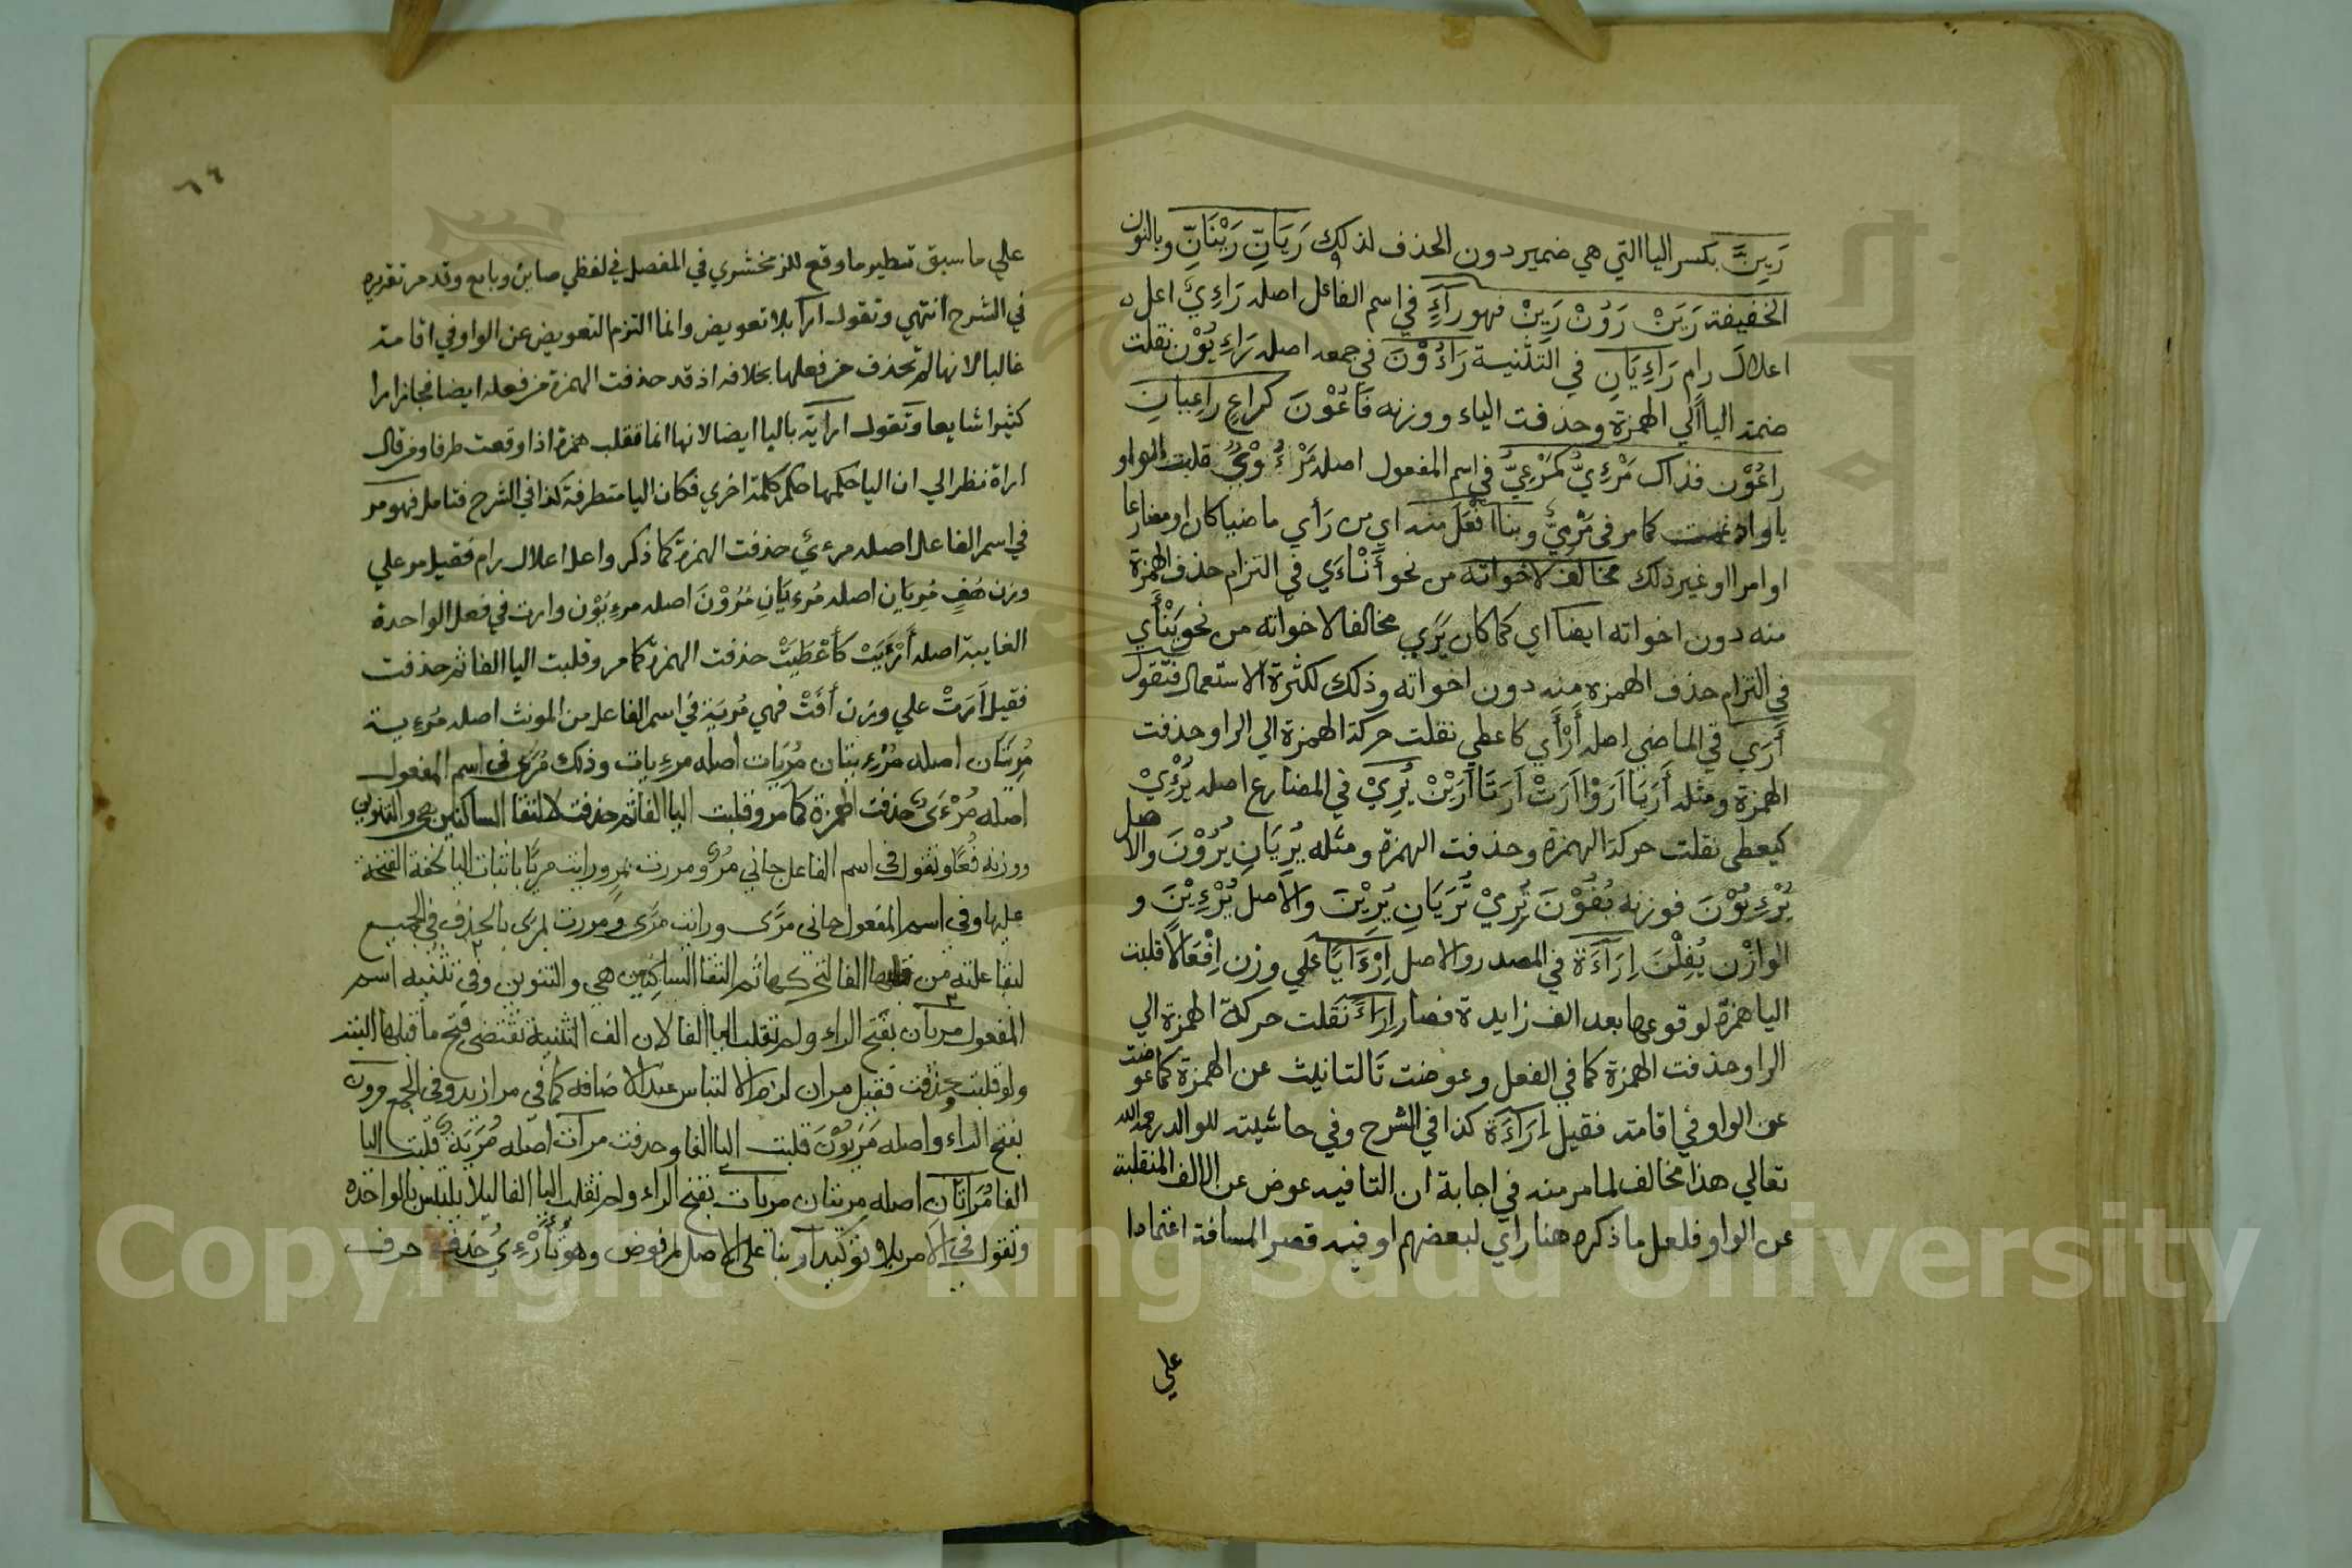 رَيِنَّ بكسر اليا التي هي ضمير دون الحذف لذلك رَيَانِّ رَيْنَانِّ وبالنون
الخفيفة رَيَنْ رَوُنْ رَيِنْ فهو رَآءٍ في اسم الفاعل اصله رَاءِيٌ اعل
اعلال رامٍ رَاءِيَانِ في التثنية رَاءُوْنَ في جمعه اصله رَاءِيُوْن نقلت
ضمة اليا الي الهمزة وحذفت الياء ووزنه فَاعُوْنَ كراعٍ راعِيَانِ
راعُوْن فذاك مَرْءِيٌّ كمَرْعِيٌّ في اسم المفعول اصله مَرْءُوْيٌ قلبت الواو
يا وادغمت كما مر في مَرْمِيٌّ وبناا فْعَلَ منه اي من رَأي ماضيا كان او مضارعا
او امرا او غير ذلك مخالف لاخواته من نحو أَنْاءَي في التزام حذف الهمزة
منه دون اخواته ايضا اي كما كان يَرَي مخالفا لاخواته من نحو يَنْأَي
في التزام حذف الهمزه منه دون اخواته وذلك لكثرة الاستعمال فتقول
أَرَي في الماضي اصله أَرْأَي كاعطي نقلت حركة الهمزة الي الرا وحذفت
الهمزة ومثله أَرَيَا أَرَوْا أَرَتْ أَرَتَا أَرَيْنَ يُرِيْ في المضارع اصله يُرْءِيْ
كيعطي نقلت حركة الهمزه وحذفت الهمزه ومثله يُرِيَانِ يُرُوْنَ والاصل
يُرْءِيُوْنَ فوزنه يُفُوْنَ تُرِيْ تُرِيَانِ يُرِيْنَ والاصل يُرْءِيْنَ و
الوازن يُفِلْنَ اِرَآءَةً في المصدر والاصل اِرْءَايًا علي وزن اِفْعَالًا قلبت
اليا همزة لوقوعها بعد الف زايدة فصار اِرْاءً نقلت حركة الهمزة الي
الرا وحذفت الهمزة كما في الفعل وعوضت تا التانيث عن الهمزة كما عوضت
عن الواو في اقامة فقيل اِرَآءَة كذا في الشرح وفي حاشيته للوالد رحمه الله
تعالي هذا مخالف لما مر منه في اجابة ان التا فيه عوض عن الالف المنقلبة
عن الواو فلعل ما ذكره هنا راي لبعضهم او فيه قصر المسافة اعتمادا
علي
٦٦
علي ما سبق تنظير ما وقع للزمخشري في المفصل في لفظي صاين وبايع وقد مر تقريره
في الشرح انتهي وتقول ارآ بلا تعويض وانما التزم التعويض عن الواو في اقامة
غالبا لانها لم تحذف من فعلها بخلافه اذ قد حذفت الهمزة من فعله ايضا فجاز ارا
كثيرا شايعا وتقول ارآية باليا ايضا لانها انما تقلب همزة اذا وقعت طرفا ومن قال
اراة نظر الي ان اليا حكمها حكم كلمة اخري فكان اليا متطرفة كذا في الشرح فتامل فهو مر
في اسم الفاعل اصله مرءي حذفت الهمزة كما ذكر واعل اعلال رام فقيل مر علي
وزن مُفٍ مُرِيَان اصله مُرءِيَانِ مُرُوْنَ اصله مرءِيُوْن وارت في فعل الواحدة
الغايبة اصله أَرْءَيَتْ كأَعْطَيَتْ حذفت الهمزة كما مر وقلبت اليا الفا ثم حذفت
فقيل أَرَتْ علي وزن أَفَتْ فهي مُرِيَة في اسم الفاعل من المونث اصله مُرْءِيَة
مُرِيَتَان اصله مُرْءِيتان مُرِيَات اصله مرءيات وذلك مُرًي في اسم المفعول
اصله مُرْءَيٌ حذفت الهمزة كما مر وقلبت اليا الفا ثم حذفت لالتقا الساكنين هي والتنوين
ووزنه مُفًا وتقول في اسم الفاعل جاني مُرٍ ومررت بمرٍ ورايت مريًا باثبات اليا لخفة الفتحة
عليها وفي اسم المفعول جاني مرًي ورايت مرًي ومررت بمرًي بالحذف في الجميع
لبقا علته من قلبها الفا لتحركها ثم التقا الساكنين هي والتنوين وفي تثنيه اسم
المفعول مريان بفتح الراء ولم تقلب اليا الفا لان الف التثنية تقتضي فتح ما قبلها البتة
ولو قلبت وحذفت فقيل مران لزم الالتباس عند الاضافه كما في مرا زيد وفي الجمع مرون
بفتح الراء واصله مَرَيُوْنَ قلبت اليا الفا وحذفت مرآت اصله مُرَيَة قلبت اليا
الفا مُرَاتَانِ اصله مريتان مريات بفتح الراء ولم تقلب اليا الفا ليلا يلتبس بالواحده
وتقول في الامر بلا توكيد ار بنا علي الاصل المرفوض وهو تُأَرْءِيُ حذف حرف